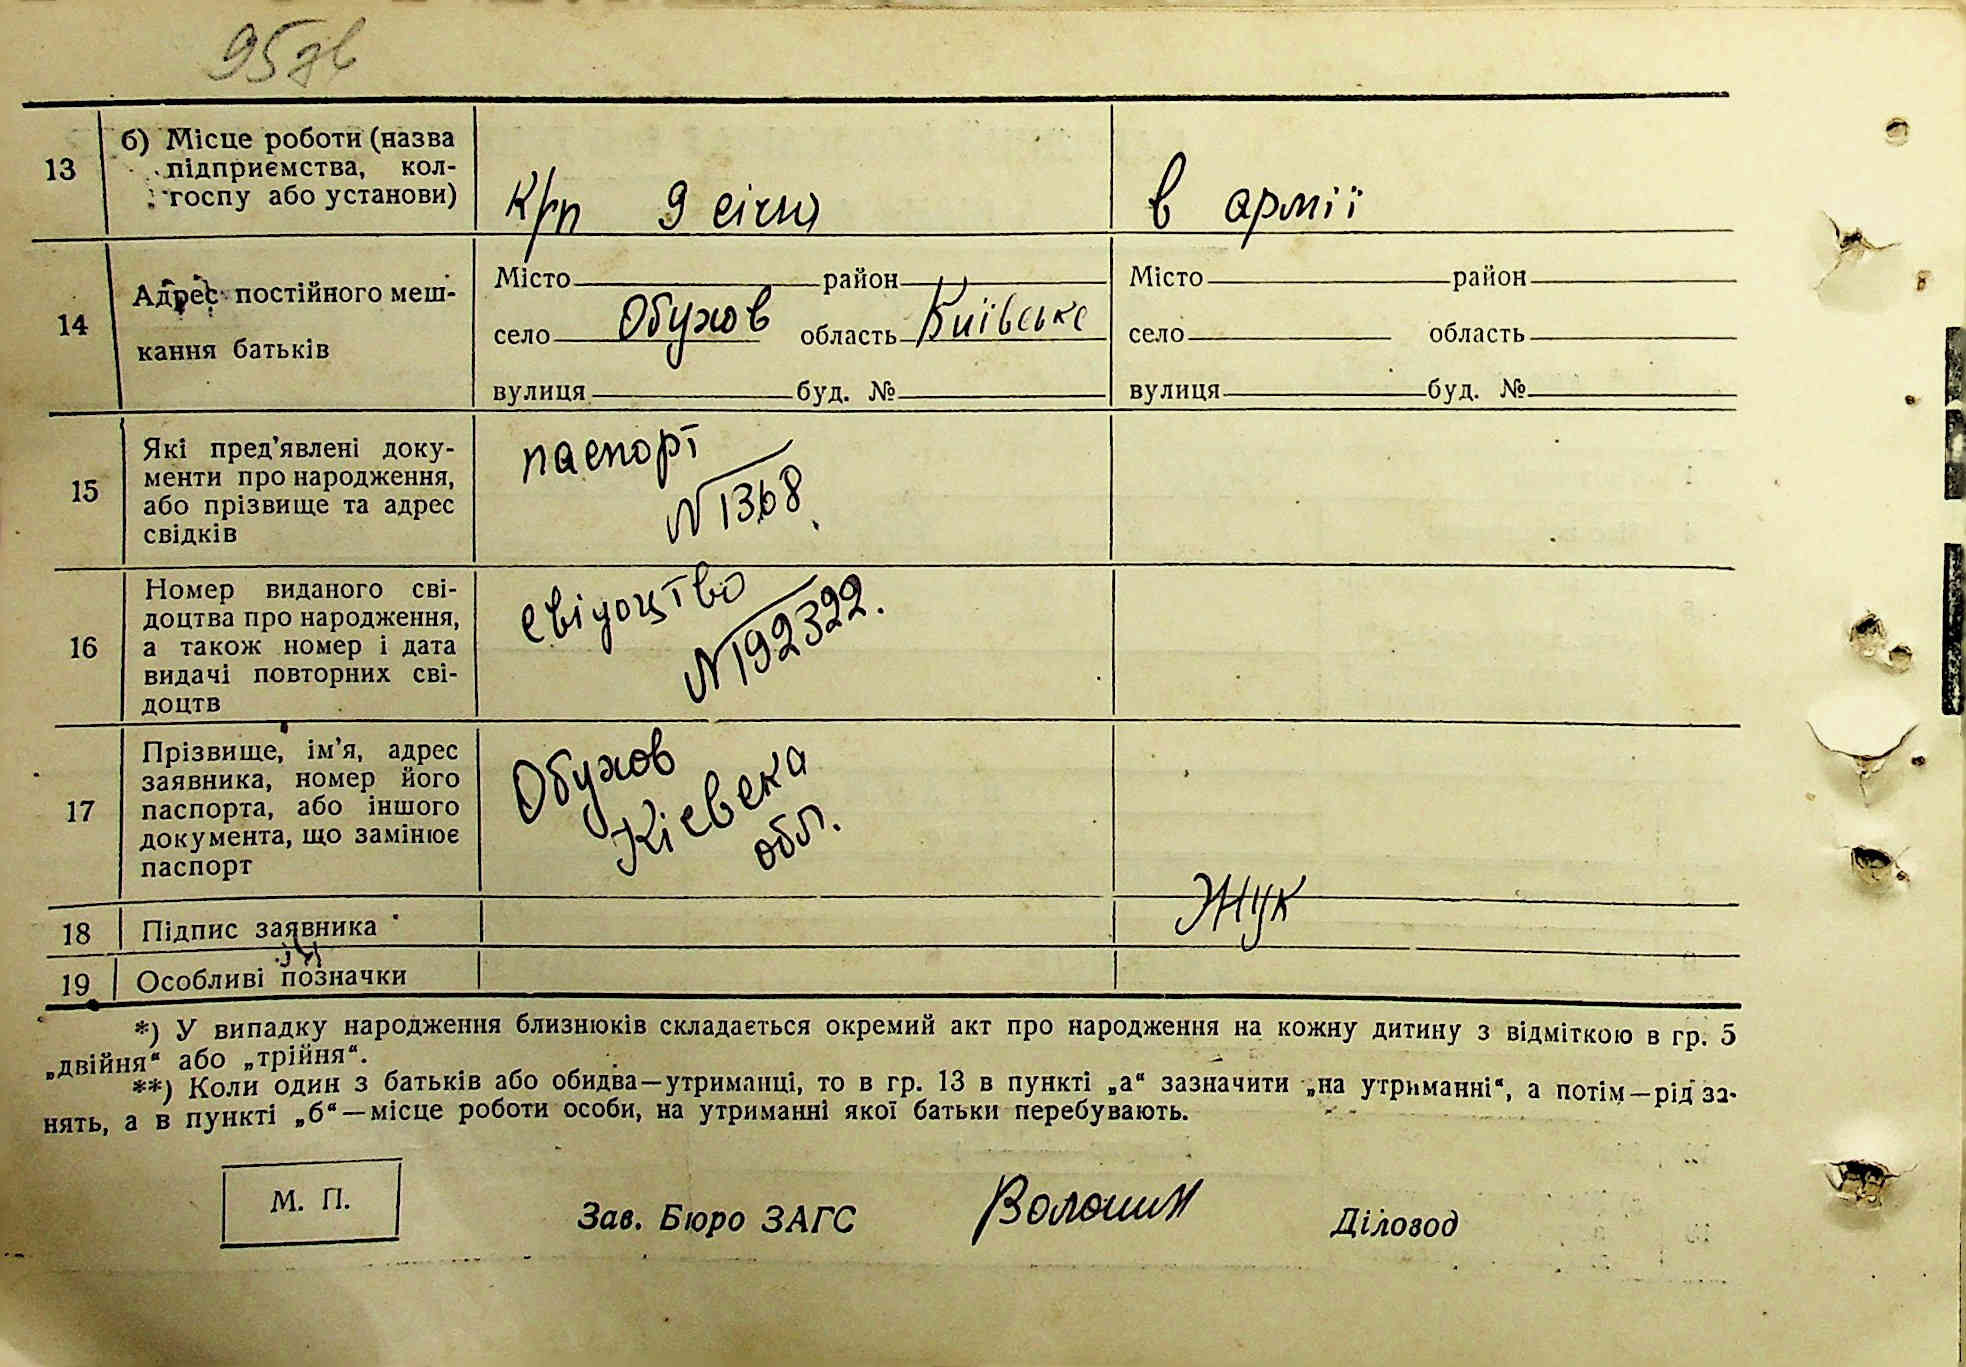 95зв
13 б) Місце роботи (назва
підприємства, кол-
госпу або установи)
К/рп 9 січня
в армії
14 Адрес постійного меш-
кання батьків
Місто район
село Обухов область Київське
вулиця буд. №
Місто район
село область
вулиця буд. №
15 Які пред'явлені доку-
менти про народження,
або прізвище та адрес
свідків
паспорт
N 1368
16 Номер виданого сві-
доцтва про народження,
а також номер і дата
видачі повторних сві-
доцтв
свідоцтво
N 192322.
17 Прізвище, ім'я, адрес
заявника, номер його
паспорта, або іншого
документа, що замінює
паспорт
Обухов
Кіевска
обл.
18 Підпис заявника
Жук
19 Особливі позначки
*) У випадку народження близнюків складається окремий акт про народження на кожну дитину з відміткою в гр. 5
„двійня“ або „трійня“.
**) Коли один з батьків або обидва—утриманці, то в гр. 13 в пункті „а“ зазначити „на утриманні“, а потім—рід за-
нять, а в пункті „б“—місце роботи особи, на утриманні якої батьки перебувають.
М. П.
Зав. Бюро ЗАГС Волошин Діловод